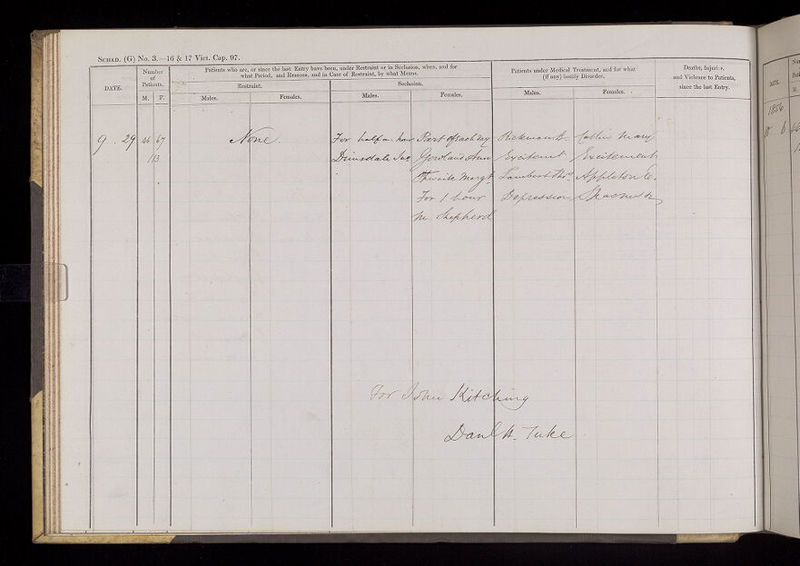 SCHED. (G) No. 3.—16 & 17 Vict. Cap. 97.
DATE.
Number of Patients.
M. F.
Patients who are, or since the last Entry have been, under Restraint or in Seclusion, when, and for
what Period, and Reasons, and in Case of Restraint, by what Means.
Restraint.
Males. Females.
Seclusion.
Males. Females.
Patients under Medical Treatment, and for what
(if any) bodily Disorder.
Males. Females.
Deaths, Injuries,
and Violence to Patients,
since the last Entry.
9. 29 46 67 None. For half an hour Part of each day Mary
113 Dimsdale Gowland Ann Excitement Excitement
Thwaite Margt. Lambert Thos. Appleton
For 1 hour Depression
M. Shepherd
For John Kitching
Danl H. Tuke
DATE.
1856